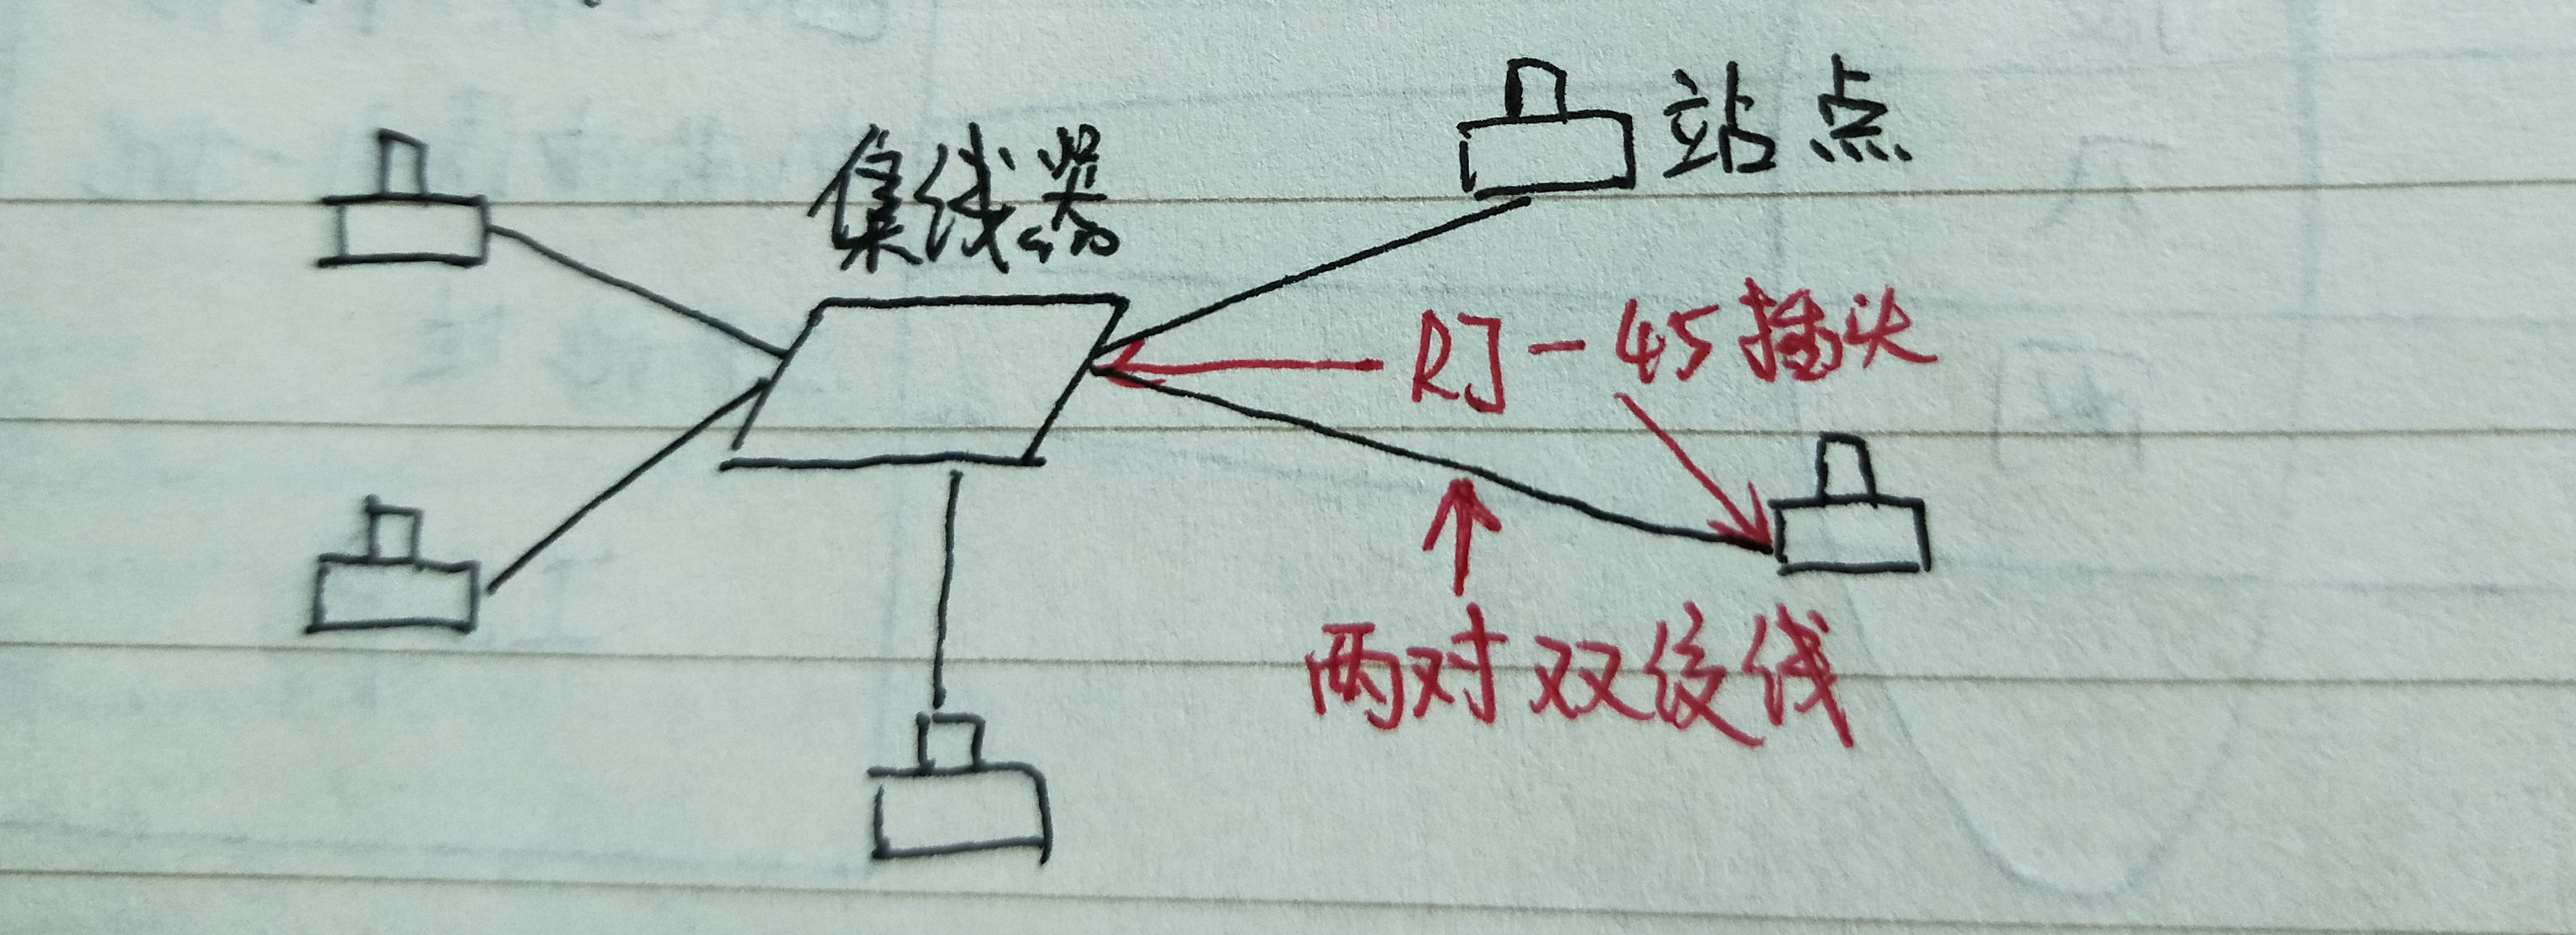 站点
集线器
RJ-45插头
两对双绞线